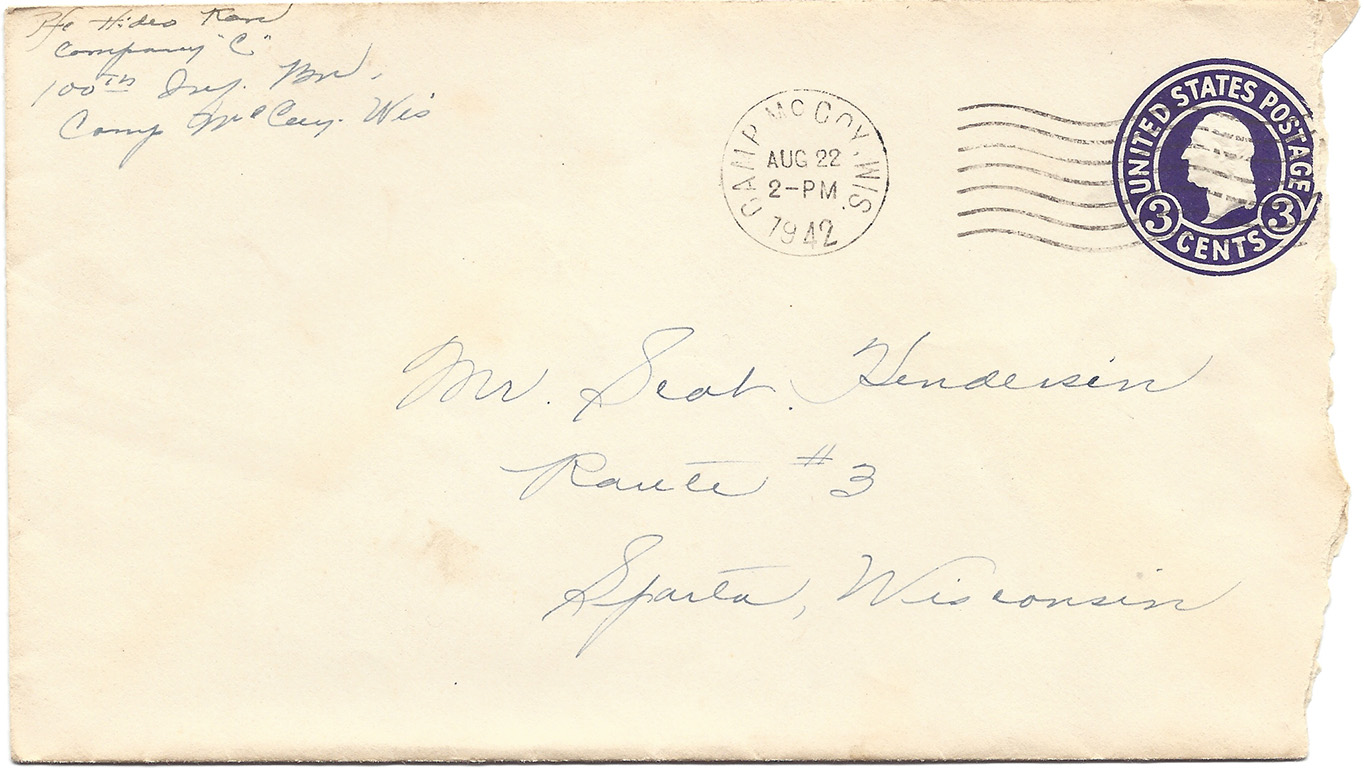 Pfc Hideo Kon
Company "C"
100th Inf. Bn.
Camp McCoy. Wis
CAMP McCOY, WIS.
AUG 22
2-PM
1942
UNITED STATES POSTAGE
3 CENTS 3
Mr. Scot. Henderson
Route #3
Sparta, Wisconsin